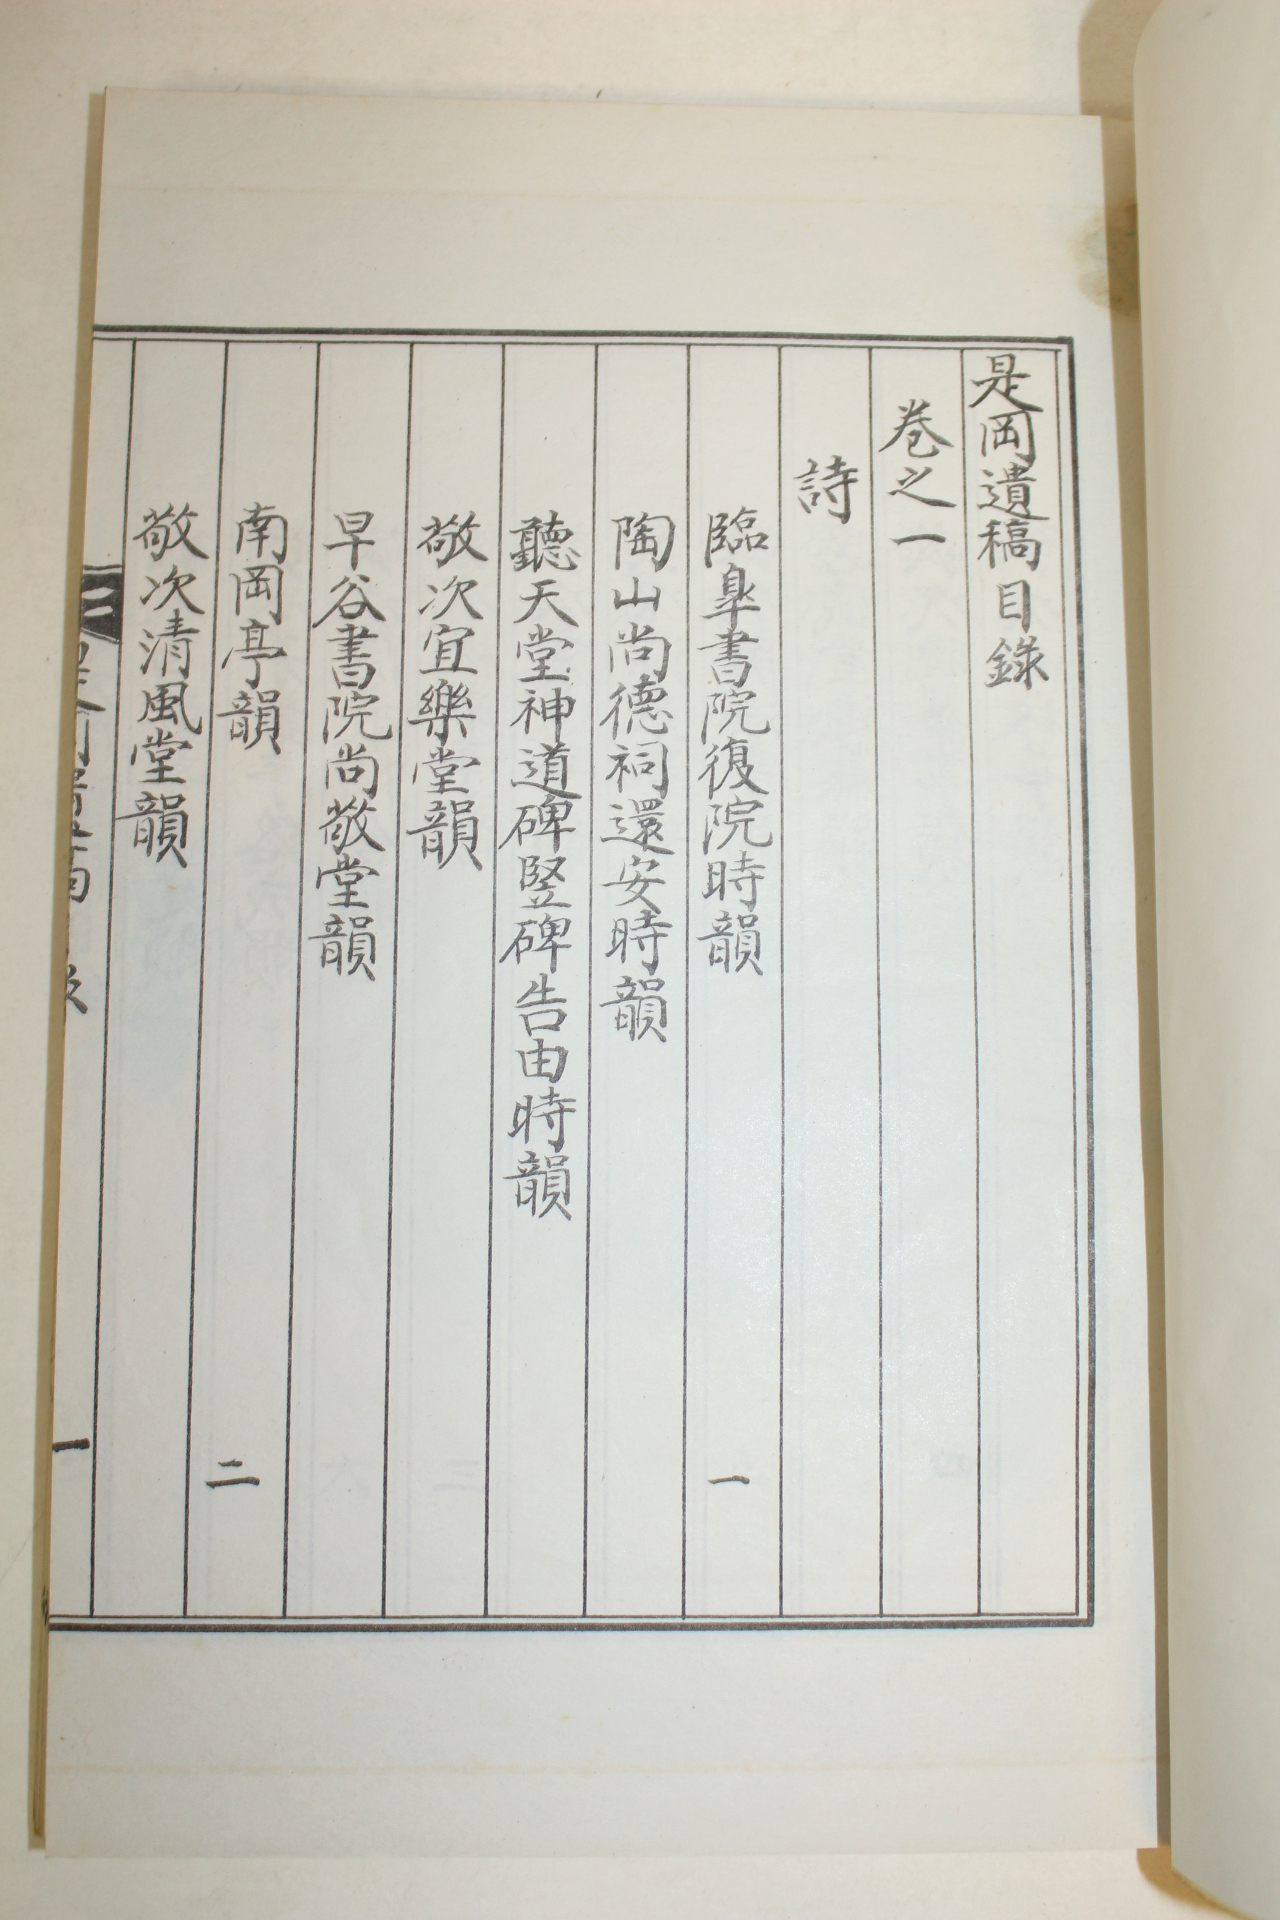 是岡遺稿目錄
卷之一
詩
臨皐書院復院時韻 一
陶山尚德祠還安時韻
聽天堂神道碑竪碑告由時韻
敬次宜樂堂韻
早谷書院尚敬堂韻
南岡亭韻 二
敬次清風堂韻
一